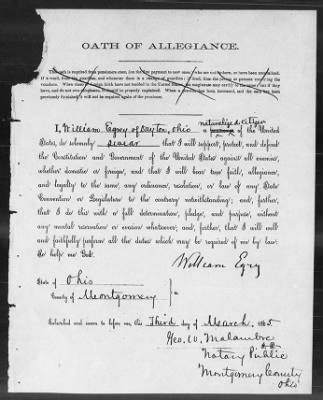 OATH OF ALLEGIANCE.
This oath is required from pensioners once, (on the first payment to each one,
naturalized citizen
I, William Egry of Dayton, Ohio a of the United
States, do solemnly swear that I will support, protect, and defend
the Constitution and Government of the United States against all enemies,
whether domestic or foreign, and that I will bear true faith, allegiance,
and loyalty to the same, any ordinance, resolution, or law of any State
Convention or Legislature to the contrary notwithstanding; and, further,
that I do this with a full determination, pledge, and purpose, without
any mental reservation or evasion whatsoever; and, further, that I will well
and faithfully perform all the duties which may be required of me by law.
So help me God.
William Egry
State of Ohio
County of Montgomery
Subscribed and sworn to before me, this Third day of March, 1865
Geo. W. Malambre
Notary Public
Montgomery County
Ohio